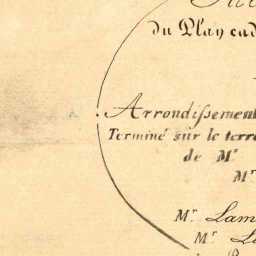 du Plan cad
Arrondissement
Terminé sur le terre
de Mr
Mr
Mr Lam
Mr L